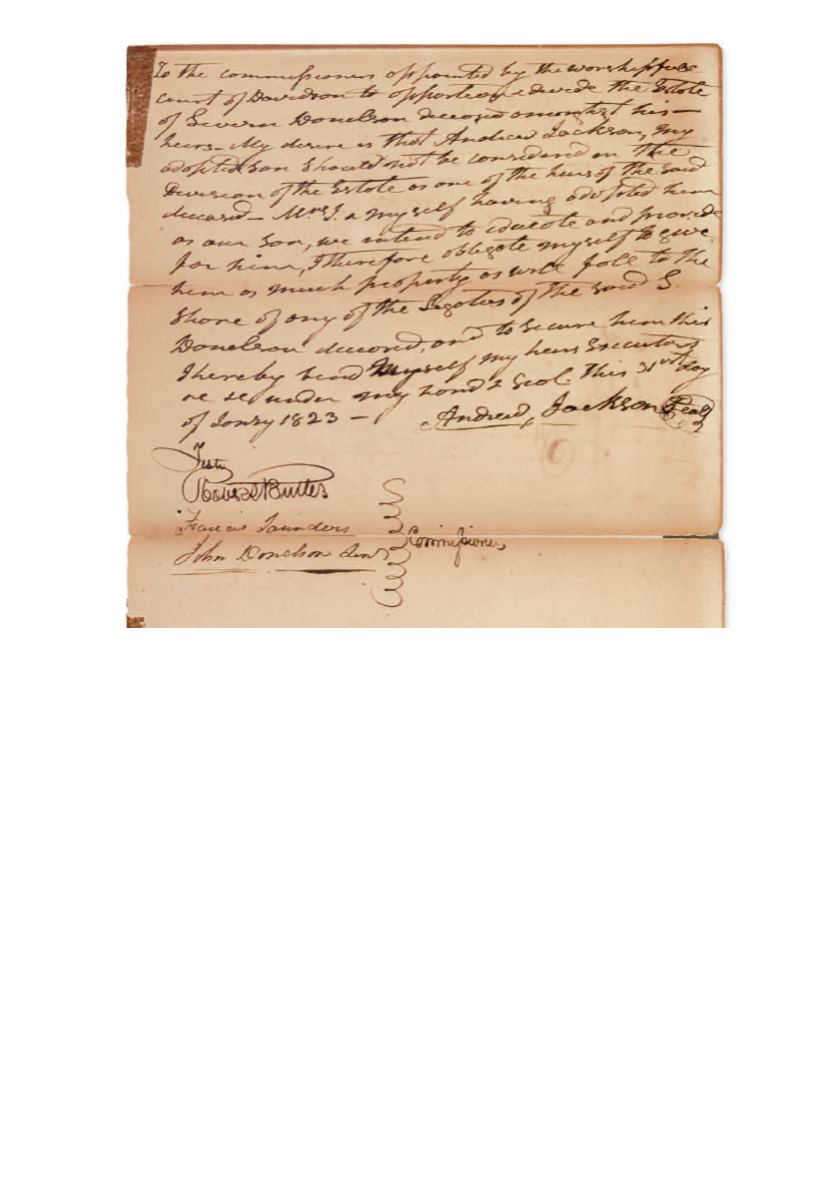 To the commissioners appointed by the worshipfull
court of Davidson to apportion & devide the Estate
of Severn Donelson deceased amonghst his—
heirs— My desire is that Andrew Jackson, my
adopted son should not be considered in the
Division of the Estate as one of the heirs of the said
deceased— Mrs J. & myself having adopted him
as our son, we intend to educate and provide
for him, I therefore obligate myself to give
him as much property as will fall to the
share of any of the Legatees of the said S.
Donelson deceased, and to secure him this
I hereby bind myself my heirs Executors
&c &c under my hand & seal this 31rst day
of Janry 1823 — Andrew Jackson Seal
Test
Robert Butler
Francis Saunders
John Donelson Senr Commissioners